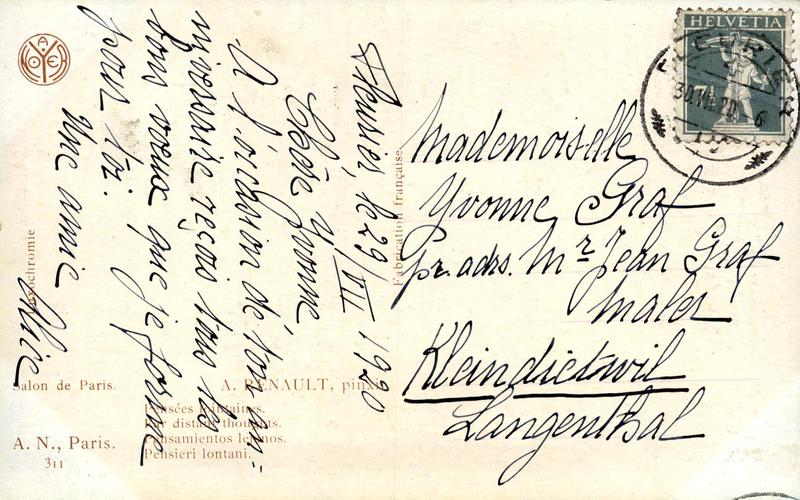 Fleurier, le 29/VII 1920
Chère Yvonne
A l'occasion de ton an-
niversaire reçois tous les
bons voeux que je forme
pour toi.
Une amie
Alice
Mademoiselle
Yvonne Graf
pr. adrs. Mr Jean Graf
Maler
Kleindietwil
Langenthal
HELVETIA
FLEURIER
30.VII.20. 6
A NOYER
Fabrication française
Salon de Paris.
A. RENAULT, pinxit
Pensées lointaines.
Far distant thoughts.
Pensamientos lejanos.
Pensieri lontani.
A. N., Paris.
311